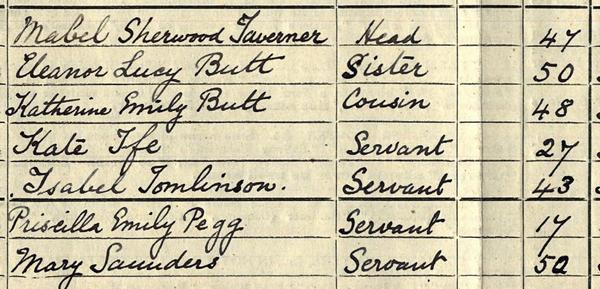 Mabel Sherwood Taverner Head 47
Eleanor Lucy Butt Sister 50
Katherine Emily Butt Cousin 48
Kate Ife Servant 27
Isabel Tomlinson. Servant 43
Priscilla Emily Pegg Servant 17
Mary Saunders Servant 50